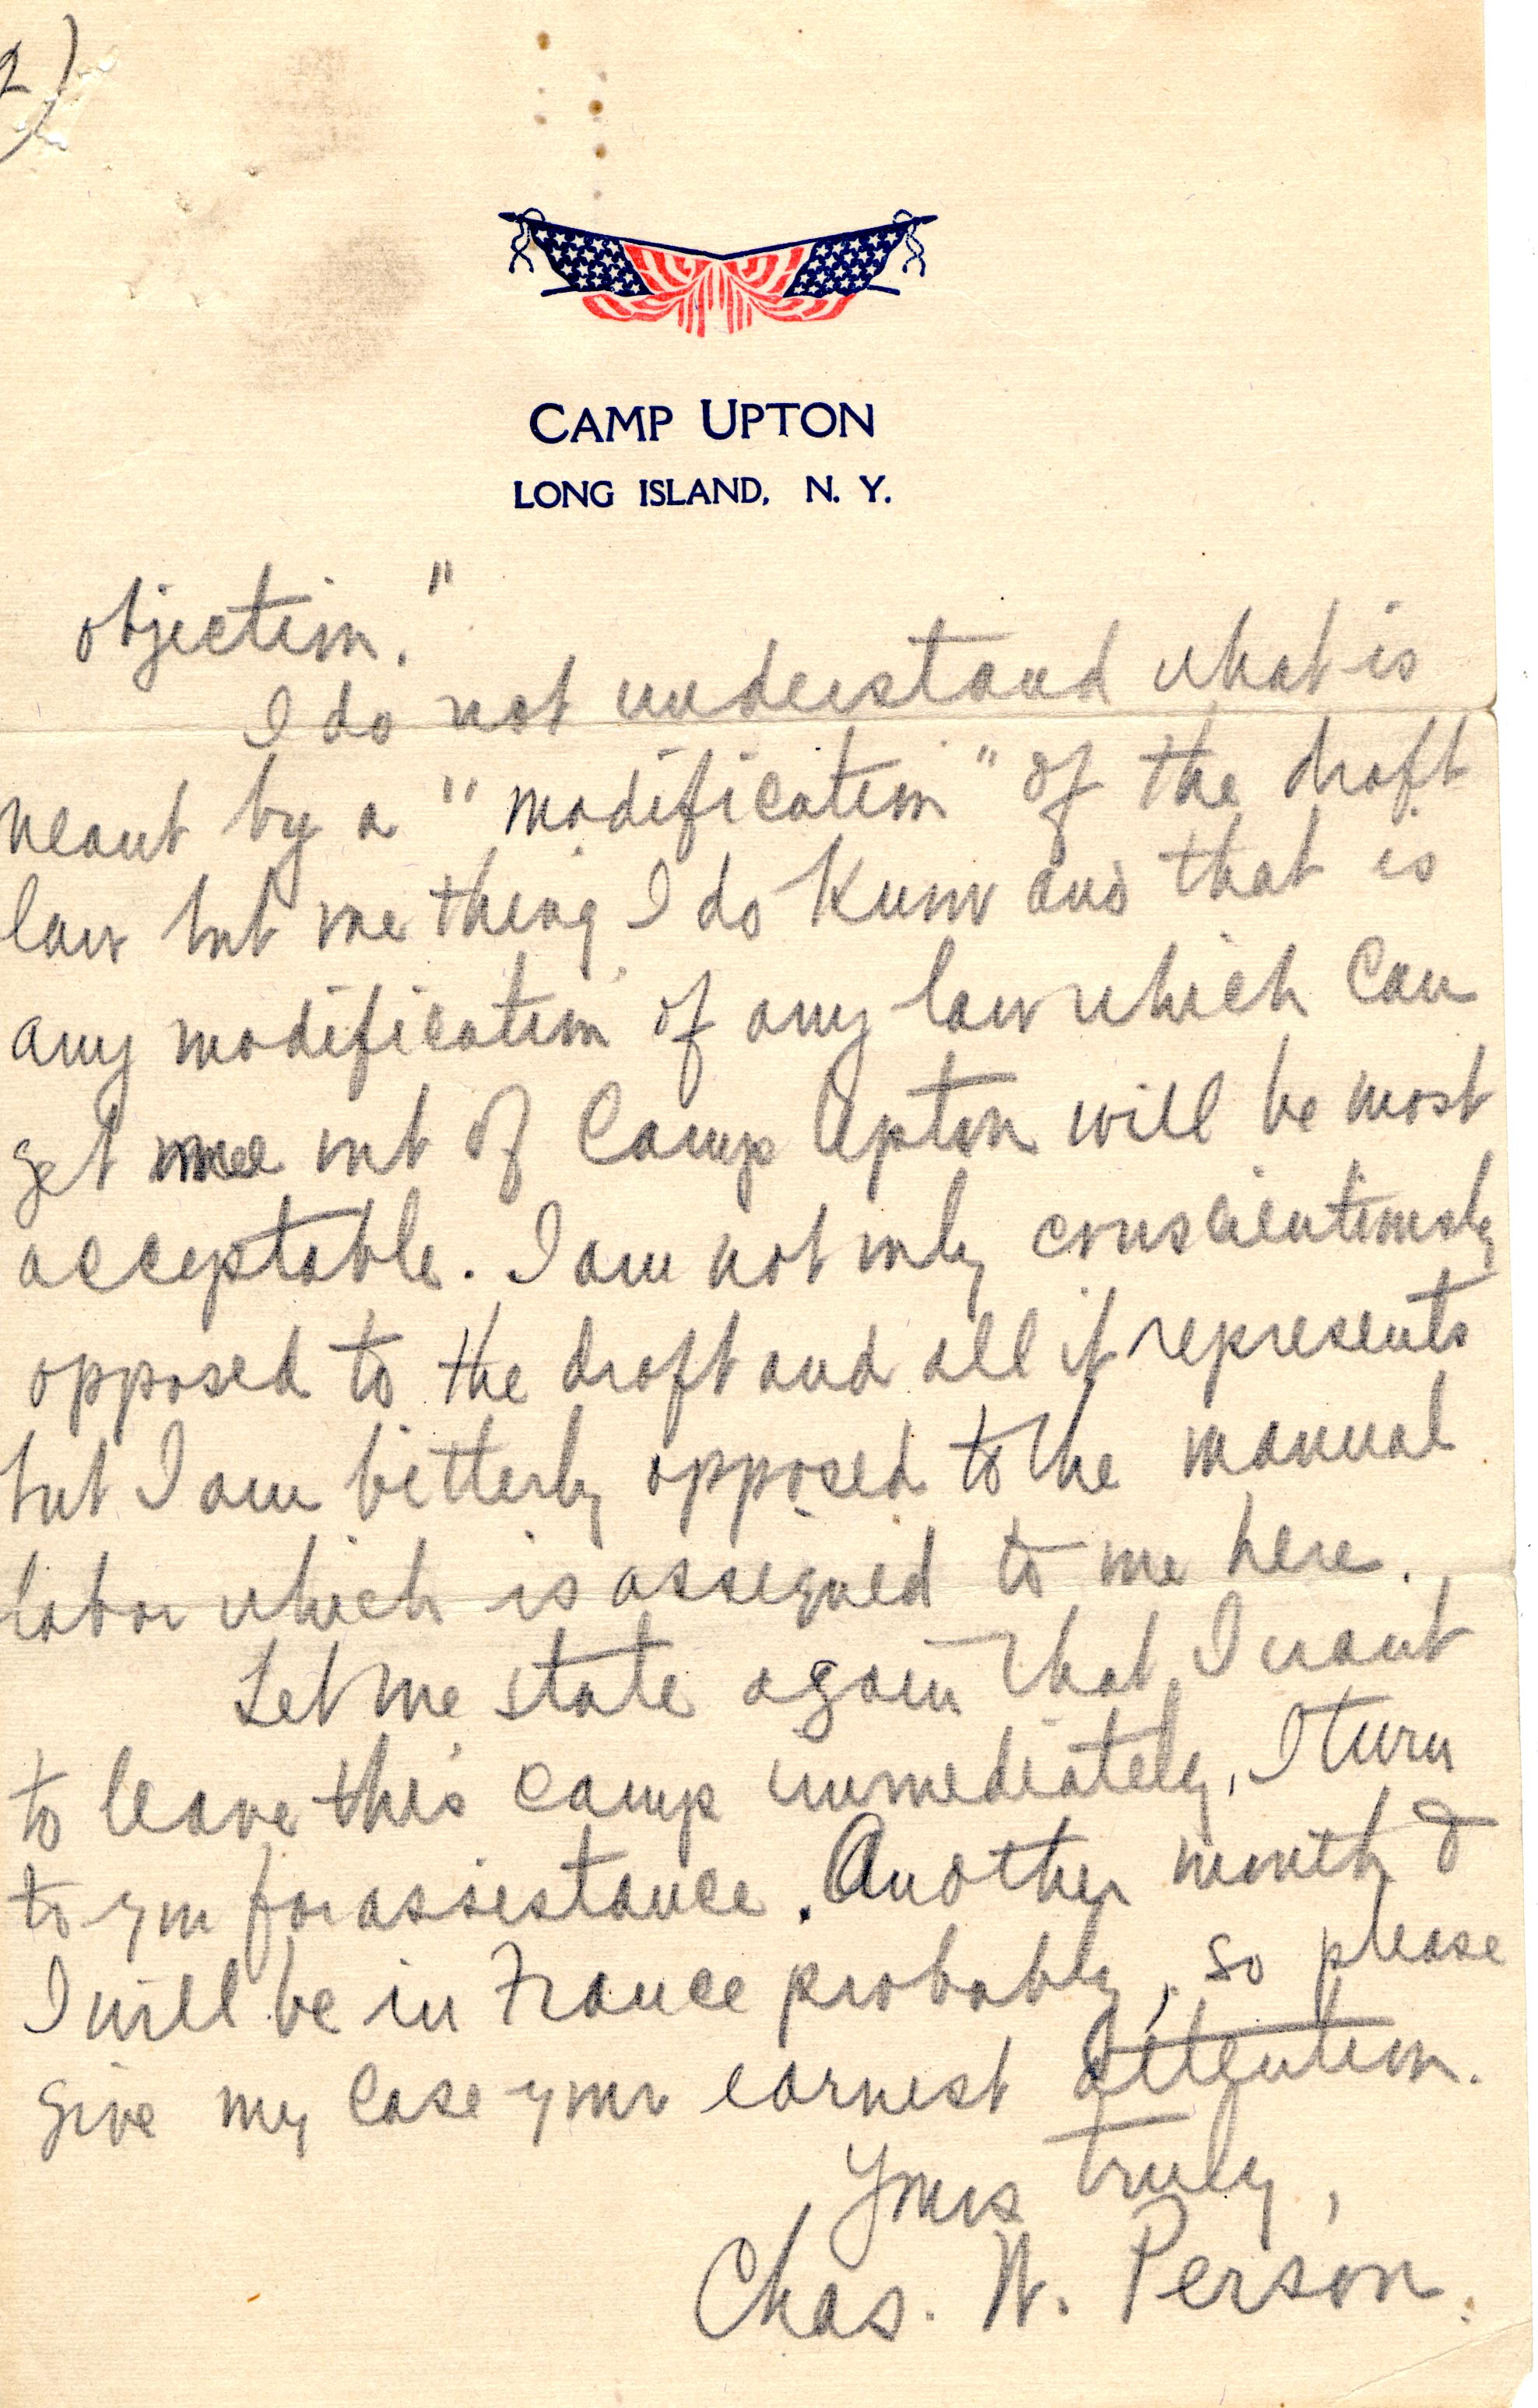 2)
CAMP UPTON
LONG ISLAND, N. Y.
objection."
I do not understand what is
meant by a "modification" of the draft
law but one thing I do know and that is
any modification of any law which can
get me out of Camp Upton will be most
acceptable. I am not only conscientiously
opposed to the draft and all it represents
but I am bitterly opposed to the manual
labor which is assigned to me here.
Let me state again that I want
to leave this camp immediately, I turn
to you for assistance. Another month &
I will be in France probably, so please
give my case your earnest attention.
Yours truly,
Chas. W. Person.